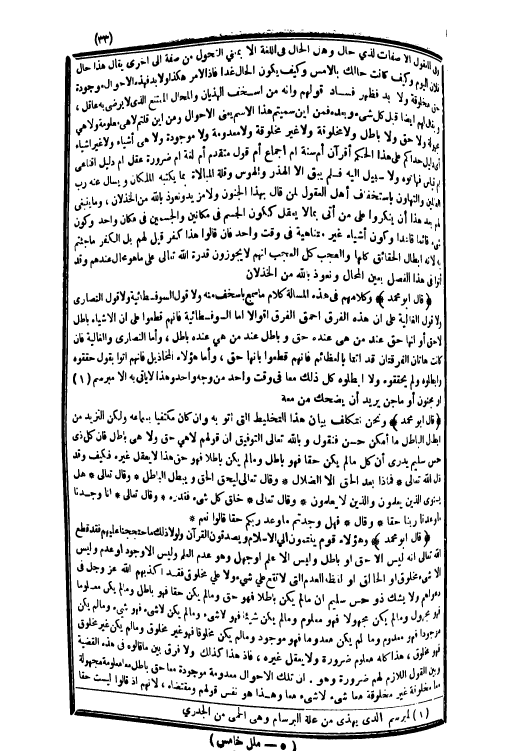 (٣٣)
في المعقول الا صفات لذي حال وهل الحال في اللغة الا بمعنى التحول من صفة الى اخرى يقال هذا حال
فلان اليوم وكيف كانت حالك بالامس وكيف يكون الحال غدا فاذ الامر هكذا ولابد فهذه الاحوال موجودة
حق مخلوقة ولا بد فظهر فساد قولهم وانه من اسخف الهذيان والمحال الممتنع الذي لا يرضى به عاقل ،
ويقال لهم ايضا قبل كل شيء وبعده فمن اين سميتم هذا الاسم يعنى الاحوال ومن اين قلتم لا هي معلومة ولا هي
مجهولة ولا حق ولا باطل ولا مخلوقة ولا غير مخلوقة ولا معدومة ولا موجودة ولا هي أشياء ولا غير اشياء
أي دليل حداكم على هذا الحكم أقرآن أم سنة ام اجماع أم قول متقدم أم لغة ام ضرورة عقل ام دليل اقناعي
ام قياس فهاتوه ولا سبيل اليه فلم يبق الا الهذر والهوس وقلة المبالاة بما يكتبه الملكان ويسأل عنه رب
العالمين والتهاون باستخفاف أهل العقول لمن قال بهذا الجنون ولا مزيد ونعوذ بالله من الخذلان ، وما ينبغي
لهم بعد هذا أن ينكروا على من أتى بمالا يعقل ككون الجسم في مكانين والجسمين في مكان واحد وكون
شيء قائما قاعدا وكون أشياء غير متناهية في وقت واحد فان قالوا هذا كفر قيل لهم بل الكفر ماجئتم
به لانه ابطال الحقائق كلها والعجب كل العجب انهم لا يجوزون قدرة الله تعالى على ماهو محال عندهم وقد
أتوا في هذا الفصل بعين المحال ونعوذ بالله من الخذلان
﴿ قال ابو محمد ﴾ وكلامهم في هذه المسألة كلام ما سمع باسخف منه ولا قول السوفسطائية ولا قول النصارى
ولا قول الغالية على ان هذه الفرق احمق الفرق اقوالا اما السوفسطائية فانهم قطعوا على ان الاشياء باطل
لاحق أو انها حق عند من هي عنده حق و باطل عند من هي عنده باطل ، وأما النصارى والغالية فان
كانت هاتان الفرقتان قد اتتا بالعظائم فانهم قطعوا بانها حق ، وأما هؤلاء المخاذيل فانهم اتوا بقول حققوه
وابطلوه ولم يحققوه ولا ابطلوه كل ذلك معا في وقت واحد من وجه واحد وهذا لا يأتي به الا مبرسم (١)
او مجنون أو ماجن يريد أن يضحك من معه
﴿ قال ابو محمد ﴾ ونحن نتكلف بيان هذا التخليط التي اتو به وان كان مكتفيا بسماعه ولكن التزيد من
ابطال الباطل ما أمكن حسن فنقول و بالله تعالى التوفيق ان قولهم لاهي حق ولا هي باطل فان كل ذي
حس سليم يدرى أن كل مالم يكن حقا فهو باطل ومالم يكن باطلا فهو حق هذا لا يعقل غيره فكيف وقد
قال الله تعالى * فماذا بعد الحق الا الضلال * وقال تعالى ليحق الحق و يبطل الباطل * وقال تعالى * هل
يستوى الذين يعلمون والذين لا يعلمون * وقال تعالى * خلق كل شيء فقدره * وقال تعالى * انا وجدنا
ماوعدنا ربنا حقا * وقال * فهل وجدتم ماوعد ربكم حقا قالوا نعم *
﴿ قال ابو محمد ﴾ وهؤلاء قوم ينتمون الى الاسلام ويصدقون القرآن ولولا ذلك ما احتججنا عليهم فقد قطع
الله تعالى انه ليس الا حق أو باطل وليس الا علم اوجهل وهو عدم العلم وليس الا وجود أو عدم وليس
الا شيء مخلوق أو الخالق او لفظة العدم التي لا تقع على شيء ولا على مخلوق فقد اكذبهم الله عز وجل في
دعواهم ولا يشك ذو حس سليم ان مالم يكن باطلا فهو حق ومالم يكن حقا فهو باطل ومالم يكن معلوما
فهو مجهول ومالم يكن مجهولا فهو معلوم ومالم يكن شيئا فهو لاشيء ومالم يكن لاشيء فهو شيء ومالم يكن
موجودا فهو معدوم وما لم يكن معدوما فهو موجود ومالم يكن مخلوقا فهو غير مخلوق ومالم يكن غير مخلوق
فهو مخلوق ، هذا كله معلوم ضرورة ولا يعقل غيره ، فاذ هذا كذلك ولا فرق بين ماقالوه في هذه القضية
وبين القول اللازم لهم ضرورة وهو . ان تلك الاحوال معدومة موجودة معا حق باطل معا معلومة مجهولة
معا مخلوقة غير مخلوقة معا شيء لاشيء معا وهذا هو نفس قولهم ومقتضاه ، لانهم اذ قالوا ليست حقا
(١) المبرسم الذى يهذى من علة البرسام وهى الحمى من الجدري
( ٥ — ملل خامس )